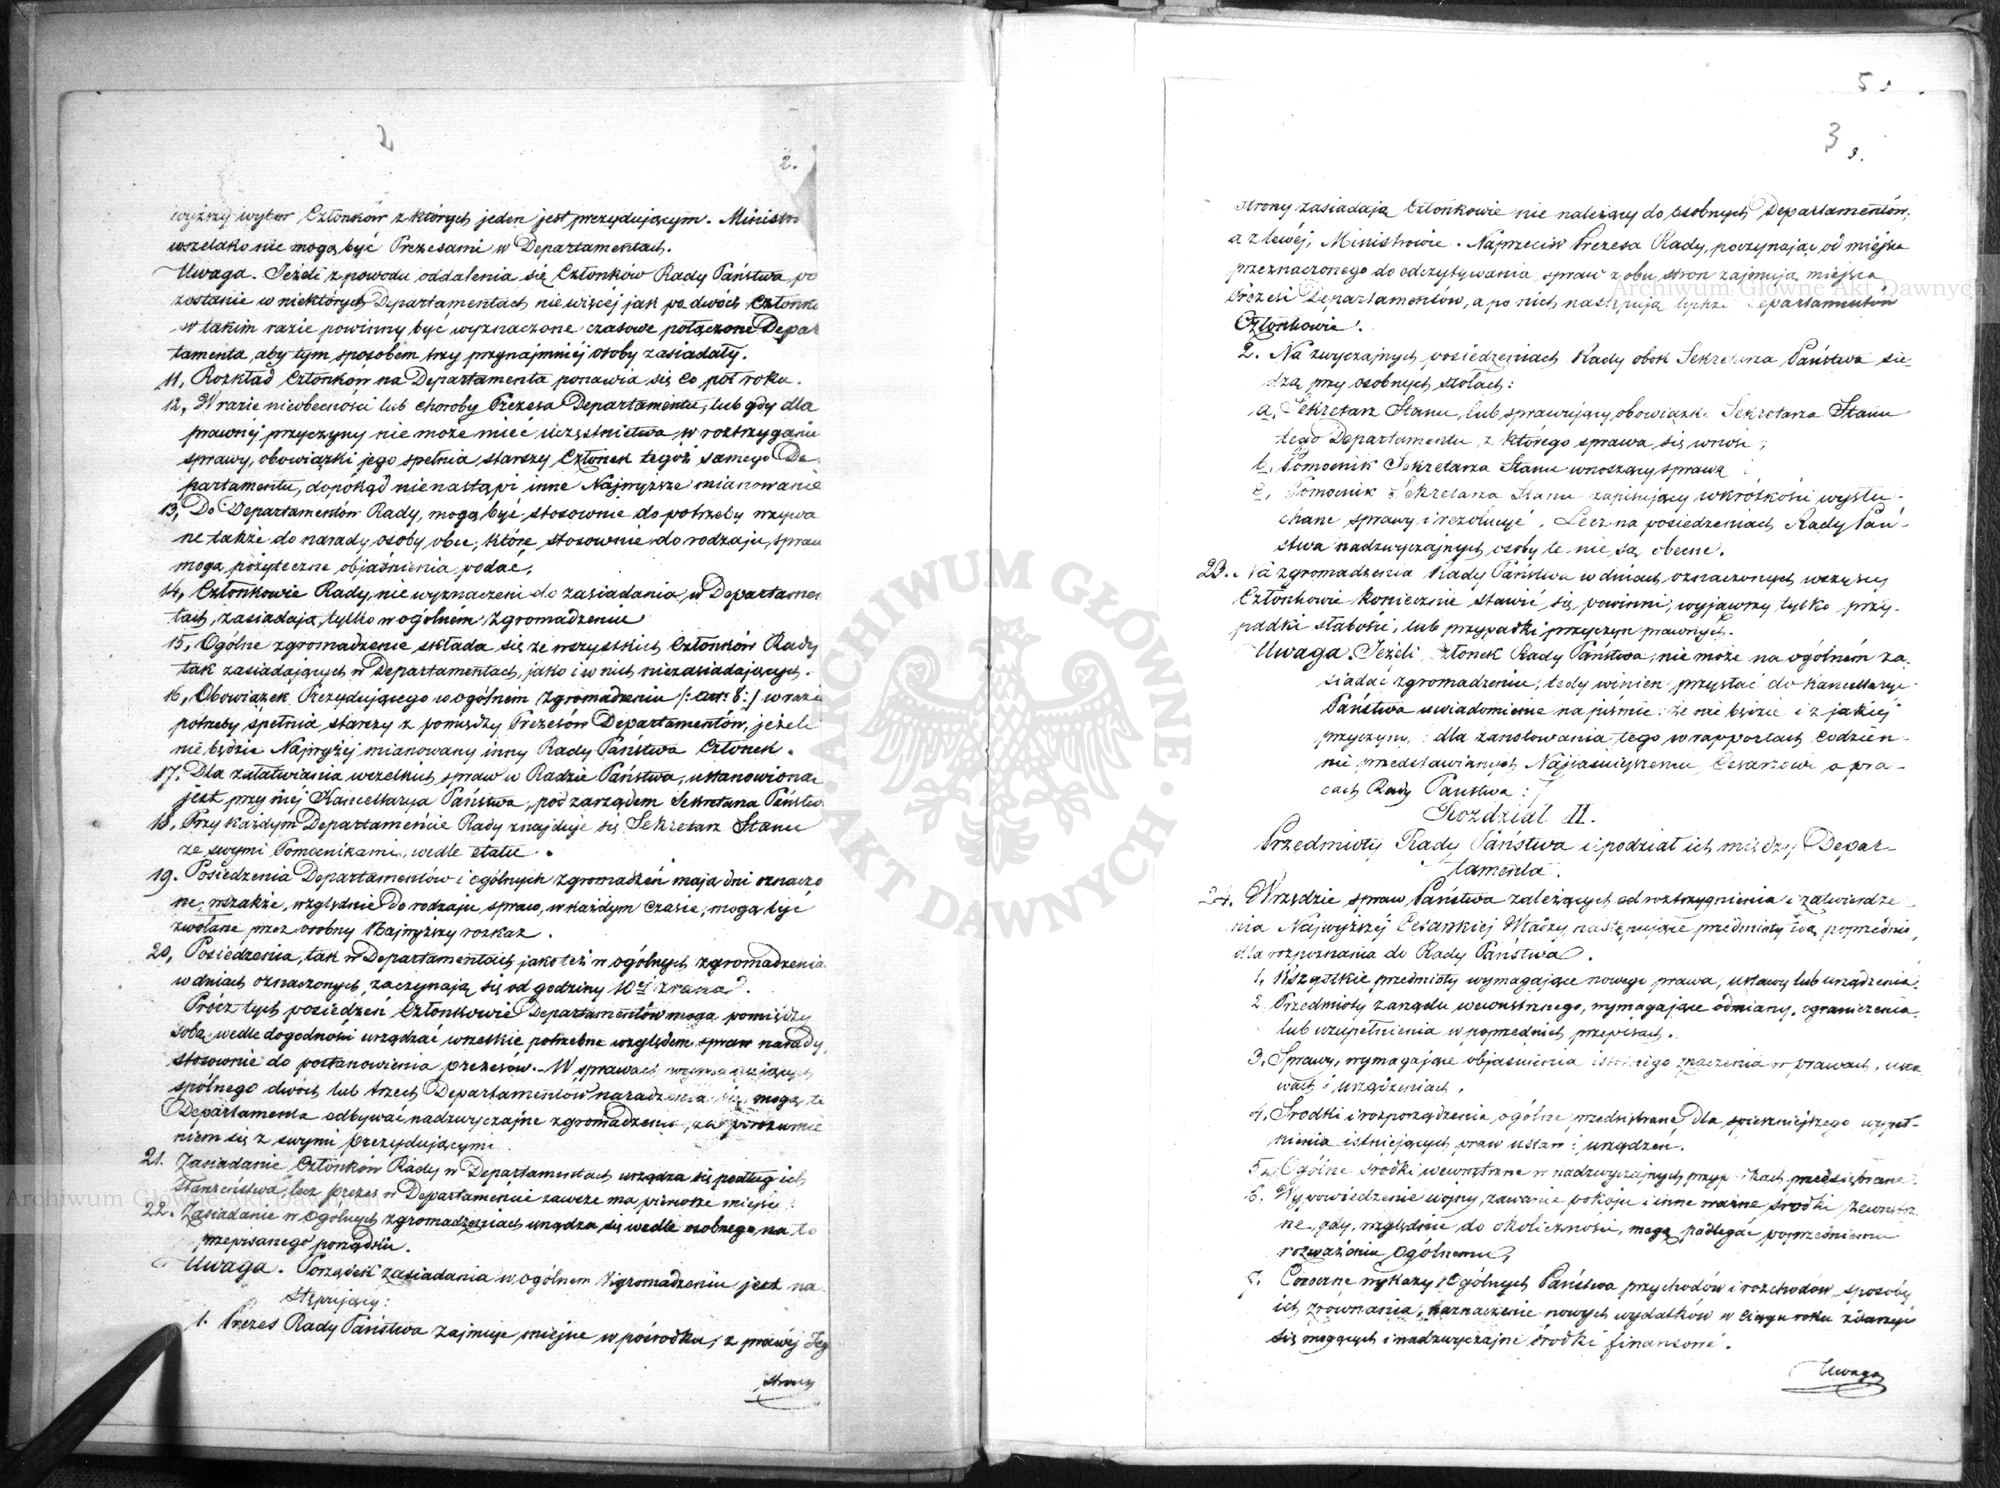 2
2.
wyższy wybór Członków z których jeden jest prezydującym. Ministro
wszelako nie mogą być Prezesami w Departamentach.
Uwaga. Jeżeli z powodu oddalenia się Członków Rady Państwa, po
zostanie w niektórych Departamentach nie więcej jak po dwóch Członkó
w takim razie powinny być wyznaczone czasowe połączone Depar
tamenta, aby tym sposobem trzy przynajmniéj osoby zasiadały.
11, Rozkład Członków na Departamenta ponawia się co pół roku.
12, W razie nieobecności lub choroby Prezesa Departamentu, lub gdy dla
prawnej przyczyny nie może mieć uczęstnictwa w roztrzyganiu
sprawy, obowiązki jego spełnia starszy Członek tegóż samego De-
partamentu, dopokąd nienastąpi inne Najwyższe mianowanie
13, Do Departamentów Rady, mogą być stosownie do potrzeby wzywa
ne także do narady osoby obce, które stosownie do rodzaju spraw
mogą pożyteczne objaśnienia podać.
14, Członkowie Rady, nie wyznaczeni do zasiadania w Departamen
tach, zasiadają tylko w ogólném Zgromadzeniu
15, Ogólne zgromadzenie składa się ze wszystkich Członków Rady
tak zasiadających w Departamentach, jako i w nich niezasiadających.
16, Obowiązek Prezydującego w ogólném Zgromadzeniu /: art: 8 :/ w razie
potrzeby spełnia starszy z pomiędzy Prezesów Departamentów, jeżeli
nie będzie Najwyżej mianowany inny Rady Państwa Członek.
17. Dla załatwiania wszelkich spraw w Radzie Państwa, ustanowiona
jest przy niéj Kancellarya Państwa, pod zarządem Sekretarza Państw
18, Przy każdym Departamencie Rady znajduje się Sekretarz Stanu
ze swymi Pomocnikami, wedle etatu.
19. Posiedzenia Departamentów i ogólnych zgromadzeń mają dni oznaczo
ne, wszakże, względnie do rodzaju spraw, w każdym czasie, mogą być
zwołane przez osobny Najwyższy rozkaz.
20, Posiedzenia, tak w Departamentach jako też w ogólnych zgromadzenia
w dniach oznaczonych, zaczynają się od godziny 10éj zrana.
Prócz tych posiedzeń Członkowie Departamentów mogą pomiędzy
sobą wedle dogodności urządzać wszelkie potrzebne względem spraw narady,
stosownie do postanowienia prezesów. W sprawach wymagających
spólnego dwóch lub trzech Departamentów naradzenia się, mogą te
Departamenta odbywać nadzwyczajne zgromadzenia, za porozumie
niem się z swymi prezydującymi
21. Zasiadanie Członków Rady w Departamentach urządza się podług ich
starszeństwa, lecz prezes w Departamencie zawsze ma pierwsze miejsce.
22. Zasiadanie w ogólnych zgromadzeniach urządza się wedle osobnego na to
przepisanego porządku.
Uwaga. Porządek zasiadania w ogólném Zgromadzeniu jest na-
stępujący:
1. Prezes Rady Państwa zajmuje miejsce w pośrodku; z prawéj Jeg
strony
5
3
3.
strony zasiadają Członkowie nie należący do osobnych Departamentów,
a z lewéj, Ministrowie. Naprzeciw Prezesa Rady, poczynając od miejsca
przeznaczonego do odczytywania spraw z obu stron zajmują miejsca
Prezesi Departamentów, a po nich następują tychże Departamentów
Członkowie.
2. Na zwyczajnych posiedzeniach Rady obok Sekretarza Państwa sie-
dzą przy osobnych stołach:
a, Sekretarz Stanu, lub sprawujący obowiązki Sekretarza Stanu
tego Departamentu, z którego sprawa się wnosi;
b, Pomocnik Sekretarza Stanu wnoszący sprawę
c, Pomocnik Sekretarza Stanu zapisujący w krótkości wysłu-
chane sprawy i rezolucyé. Lecz na posiedzeniach Rady Pań-
stwa nadzwyczajnych osoby te nie są obecne.
23. Na zgromadzenia Rady Państwa w dniach oznaczonych wszyscy
Członkowie koniecznie stawić się powinni, wyjąwszy tylko przy-
padki słabości, lub przypadki przyczyn prawnych.
Uwaga. Jeżeli Członek Rady Państwa, nie może na ogólném za-
siadać zgromadzeniu, tedy winien przysłać do Kancellaryi
Państwa uwiadomienie na piśmie: że nie będzie i z jakiej
przyczyny, : dla zanotowania tego w rapportach codzien-
nie przedstawianych Najjaśniejszemu Cesarzowi o pra-
cach Rady Państwa :/
Rozdział II.
Przedmioty Rady Państwa i podział ich między Depar-
tamenta.
24. W rzędzie spraw Państwa zależących od roztrzygnienia i zatwierdze-
nia Najwyższéj Cesarskiej Mości, następujące przedmioty idą poprzednio,
dla rozpoznania do Rady Państwa.
1, Wszystkie przedmioty wymagające nowego prawa, ustawy lub urządzenia,
2. Przedmioty zarządu wewnętrznego, wymagające odmiany, ograniczenia,
lub uzupełnienia w poprzednich przepisach.
3, Sprawy, wymagające objaśnienia istotnego znaczenia w prawach, usta
wach i urządzeniach.
4, Środki i rozporządzenia ogólne, przedsiębrane dla spieszniejszego wypeł-
nienia istniejących praw ustaw i urządzeń.
5, Ogólne środki wewnętrzne w nadzwyczajnych przypadkach przedsiębrane.
6. Wypowiedzenie wojny, zawarcie pokoju i inne ważne środki zewnętrz
ne, gdy, względnie do okoliczności, mogą podlegać poprzedniemu
rozważaniu ogólnemu,
7. Coroczne wykazy ogólnych Państwa przychodów i rozchodów, sposoby
ich zrównania, naznaczenie nowych wydatków w ciągu roku zdarzyć
się mogących i nadzwyczajne środki finansowé.
Uwaga
Archiwum Główne Akt Dawnych
Archiwum Główne Akt Dawnych
ARCHIWUM GŁÓWNE
AKT DAWNYCH